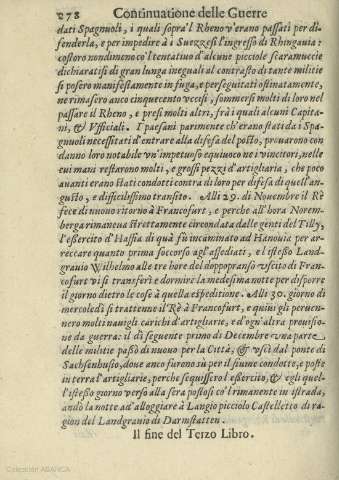 278 Continuatione delle Guerre
dati Spagnuoli, i quali sopra'l Rheno v'erano passati per di-
fenderla, e per impedire à i Suezzesi l'ingresso di Rhingauia:
costoro nondimeno co'l tentatiuo d'alcune picciole scaramuccie
dichiaratisi di gran lunga ineguali al contrasto di tante militie
si posero manifestamente in fuga, e perseguitati ostinatamente,
ne rimasero anco cinquecento vccesi, sommersi molti di loro nel
passare il Rheno, e presi molti altri, frà i quali alcuni Capita-
ni, & Vfficiali. I paesani parimente ch'erano stati da i Spa-
gnuoli necessitati d'entrare alla difesa del posto, prouarono con
danno loro notabile vn'impetuoso equiuoco ne i vincitori, nelle
cui mani restarono molti, e grossi pezzi d'artigliaria, che poco
auanti erano stati condotti contra di loro per difesa di quell'an-
gusto, e difficilissimo transito. Alli 29. di Nouembre il Rè
fece di nuouo ritorno à Francofurt, e perche all'hora Norem-
berga rimaneua strettamente circondata dalle genti del Tilly,
l'essercito d'Hassia di quà fù incaminato ad Hanouia per ar-
reccare quanto prima soccorso agl'assediati, e l'istesso Land-
grauio Wilhelmo alle tre hore del doppopranso vscito di Fran-
cofurt vi si transferì e dormire la medesima notte per disporre
il giorno dietro le cose à quella espeditione. Alli 30. giorno di
mercoledì si trattenne il Rè à Francofurt, e quiui gli peruen-
nero molti nauigli carichi d'artiglarie, e d'ogn'altra prouisio-
ne da guerra: il dì seguente primo di Decembre vna parte
delle militie passò di nuouo per la Città, & vscì dal ponte di
Sachsenhusio, doue anco furono sù per il fiume condotte, e poste
in terra l'artiglarie, perche seguissero l'essercito, & egli quel-
l'istesso giorno verso alla sera postosi co'l rimanente in istrada,
andò la notte ad'alloggiare à Langio picciolo Castelletto di ra-
gion del Landgrauio di Darmstatten.
Il fine del Terzo Libro.
Colección ABANCA